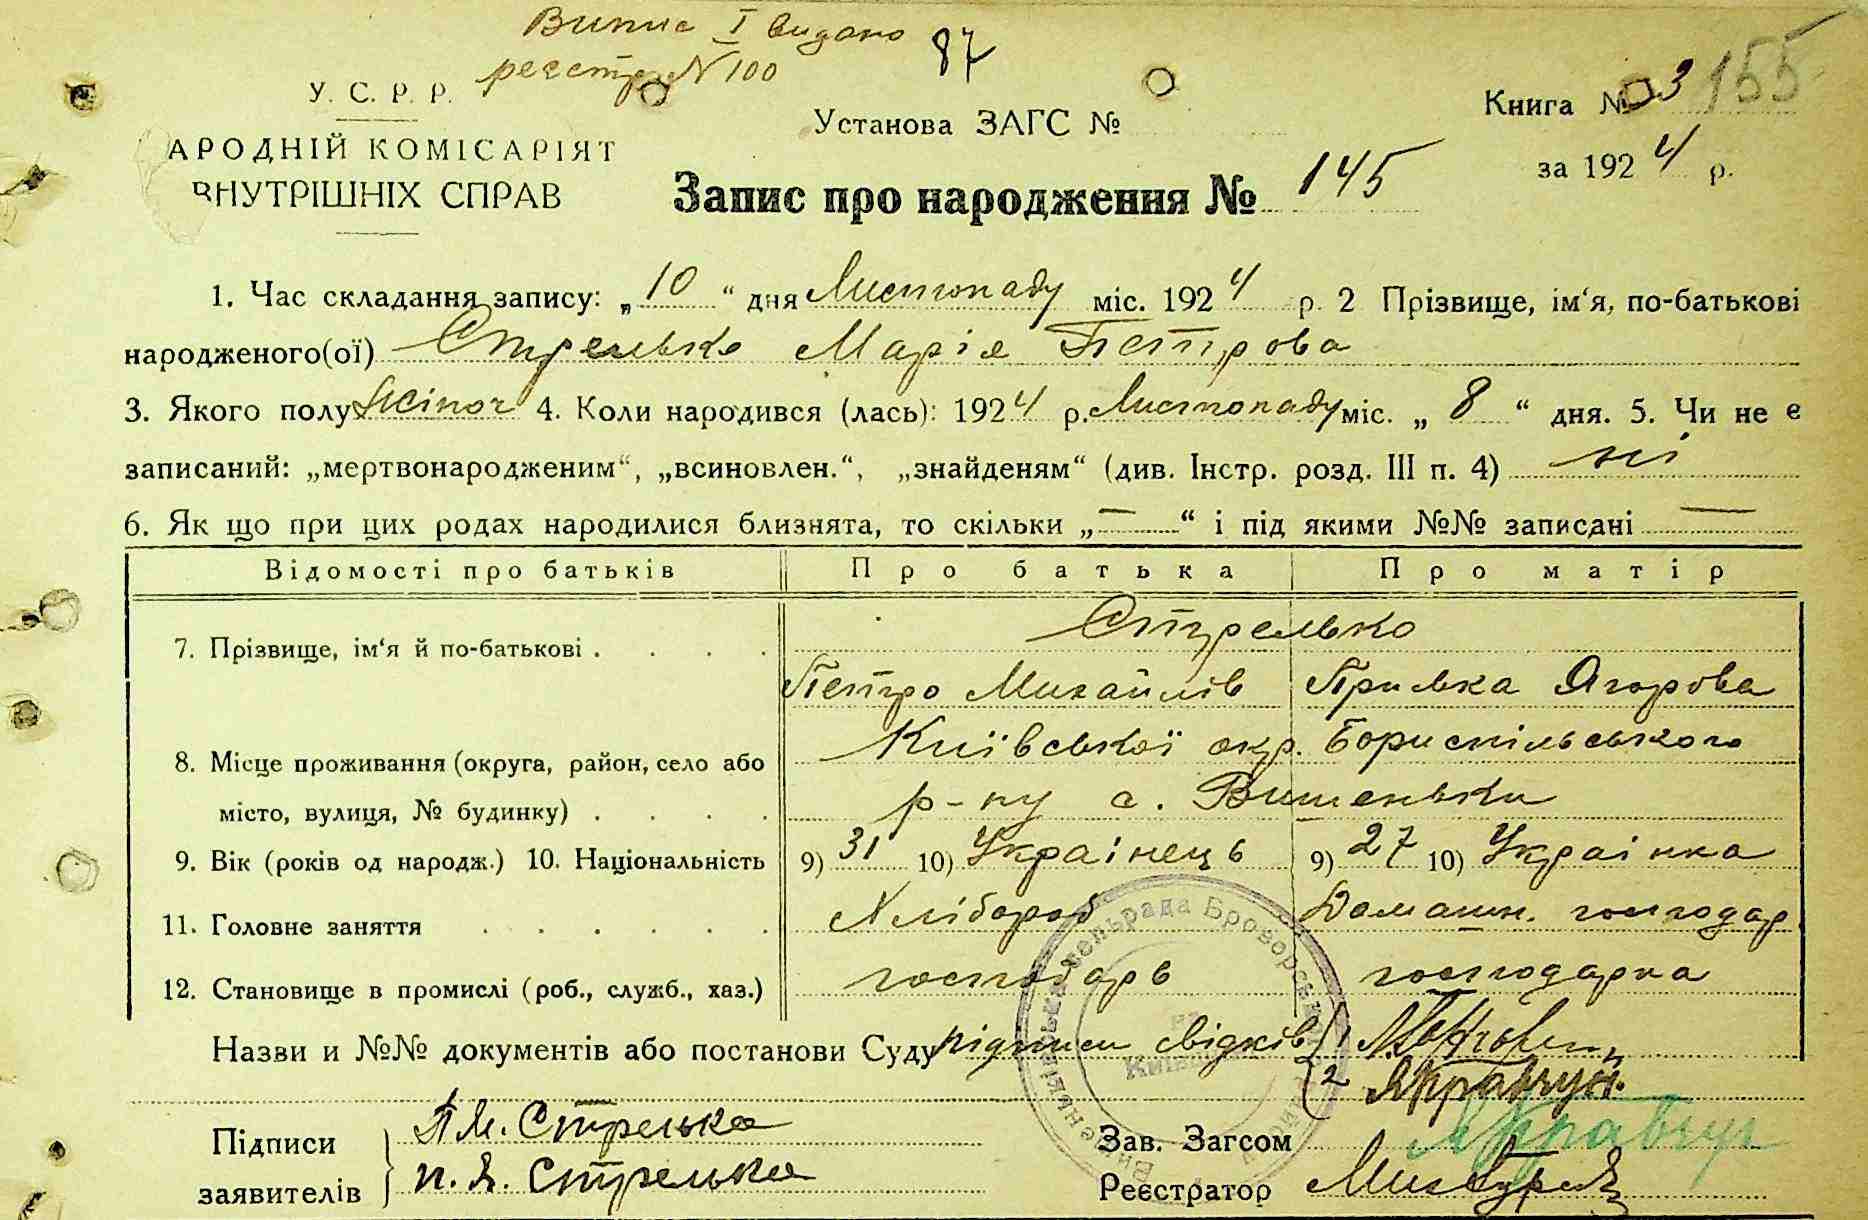 Випис І видано
реєстр N 100
87
155
У. С. Р. Р.
Установа ЗАГС №
Книга № 3
АРОДНІЙ КОМІСАРІЯТ
ВНУТРІШНІХ СПРАВ
за 1924 р.
Запис про народження № 145
1. Час складання запису: „10“ дня Листопаду міс. 1924 р. 2 Прізвище, ім‘я, по-батькові
народженого(ої) Стрелько Марія Петрова
3. Якого полу жіноч 4. Коли народився (лась): 1924 р. Листопаду міс. „8“ дня. 5. Чи не є
записаний: „мертвонародженим“, „всиновлен.“, „знайденям“ (див. Інстр. розд. III п. 4) ні
6. Як що при цих родах народилися близнята, то скільки „—“ і під якими №№ записані —
Відомості про батьків Про батька Про матір
7. Прізвище, ім‘я й по-батькові . . . . Стрелько
Петро Михайлів Прилька Ягорова
8. Місце проживання (округа, район, село або Київської окр. Бориспільського
місто, вулиця, № будинку) . . . . р-ну с. Вишеньки
9. Вік (років од народж.) 10. Національність 9) 31 10) Українець 9) 27 10) Українка
11. Головне заняття . . . . . . Хлібороб Домашн. господар
12. Становище в промислі (роб., служб., хаз.) господарь господарка
Назви и №№ документів або постанови Суду підписи свідків 1
2 Я Кравчук
Підписи
заявителів
П М. Стрелька
П. Я. Стрелька
Зав. Загсом ЯКравчук
Реєстратор
сельрада Броворськ
Київ